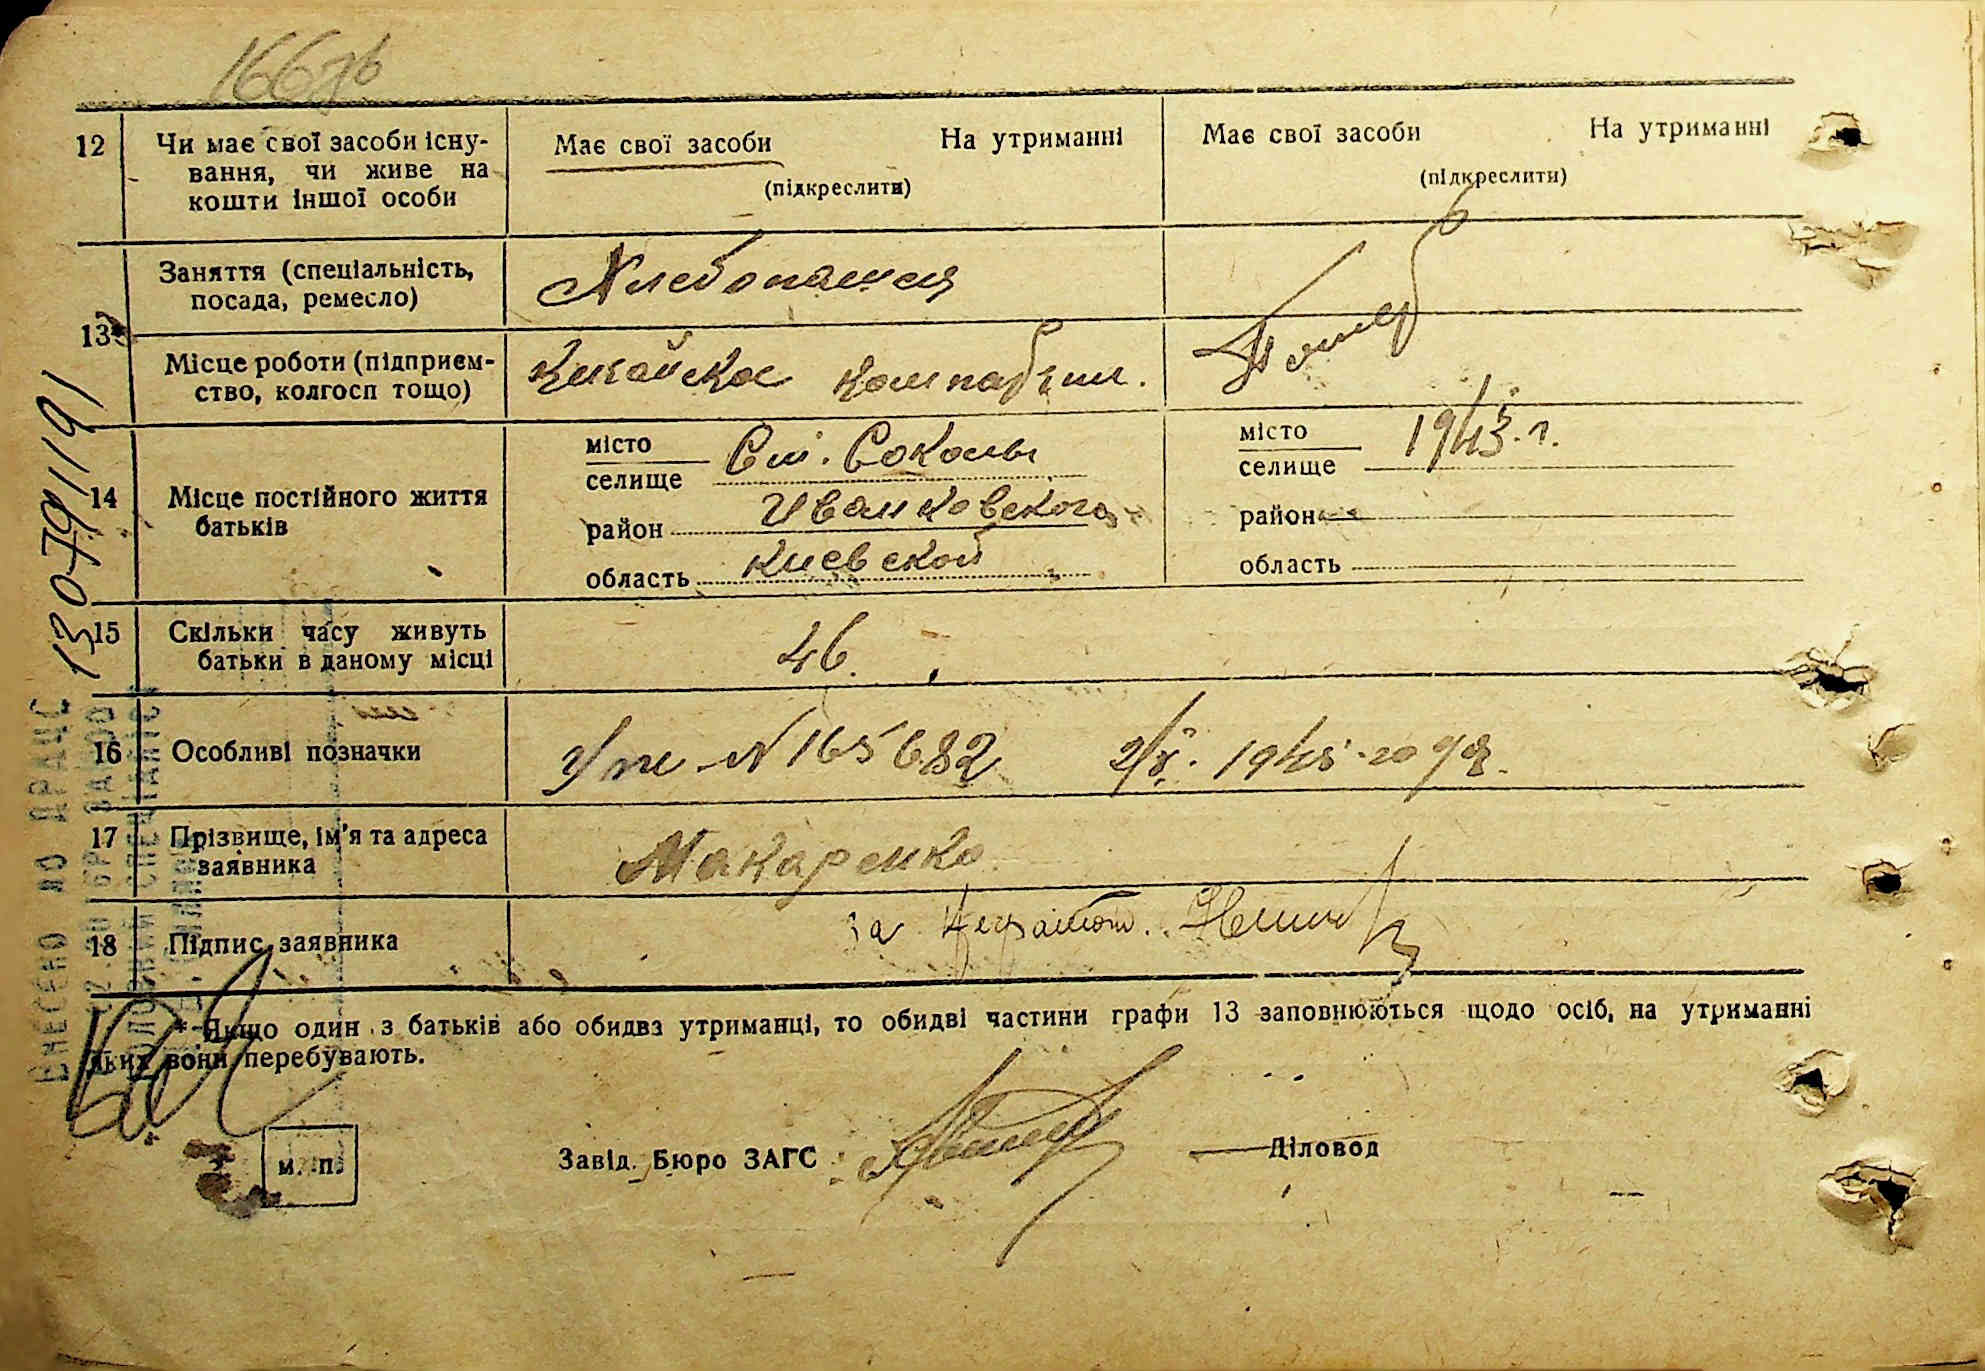 12
Чи має свої засоби існу-
вання, чи живе на
кошти іншої особи
Має свої засоби На утриманні
(підкреслити)
Має свої засоби На утриманні
(підкреслити)
13*
Заняття (спеціальність,
посада, ремесло)
Хлебопашец
Місце роботи (підприєм-
ство, колгосп тощо)
Погиб
1943 г.
14
Місце постійного життя
батьків
місто
селище
район Иванковского
область Киевской
місто
селище
район
область
15
Скільки часу живуть
батьки в даному місці
46.
16
Особливі позначки
N 165682 1945 года.
17
Прізвище, ім'я та адреса
заявника
Макаренко
18
Підпис заявника
за неграмот.
* Якщо один з батьків або обидва утриманці, то обидві частини графи 13 заповнюються щодо осіб, на утриманні
яких вони перебувають.
м. п.
Завід. Бюро ЗАГС
Діловод
ВНЕСЕНО ДО ДРАЦС
130791191